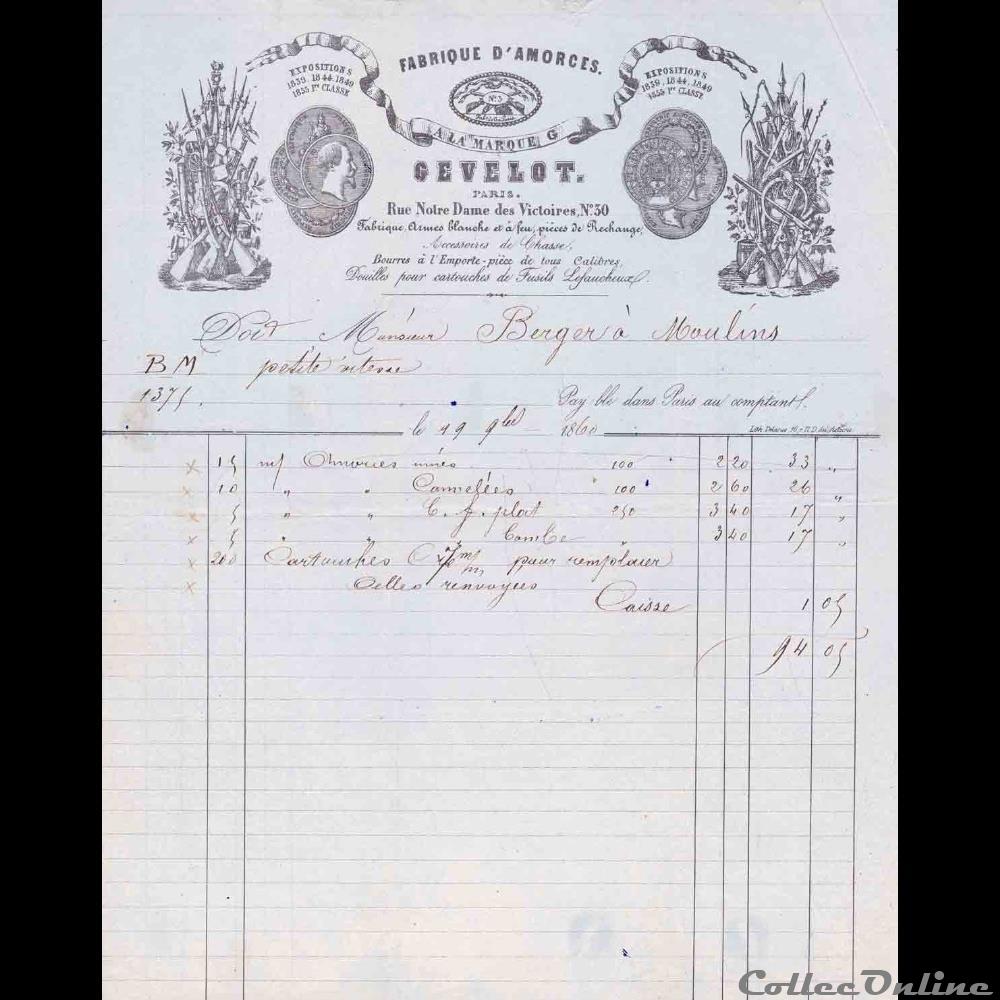 FABRIQUE D'AMORCES.
EXPOSITIONS
1839, 1844, 1849
1855 1re CLASSE
EXPOSITIONS
1839, 1844, 1849
1855 1re CLASSE
No 3
A LA MARQUE G
GEVELOT.
PARIS.
Rue Notre Dame des Victoires, No. 30
Fabrique, Armes blanche et à feu, pièces de Rechange,
Accessoires de Chasse.
Bourres à l'Emporte-pièce de tous Calibres,
Douilles pour cartouches de Fusils Lefaucheux.
Doit Monsieur Berger à Moulins
BM petite vitesse
1375. Payble dans Paris au comptant.
le 19 9bre 1860
x 15 m/ Amorces unies 100 2 20 33 "
x 10 " " Cannelées 100 2 60 26 "
x 5 " " C. f. plat 250 3 40 17 "
x 5 " " " Combe " 3 40 17 "
x 200 Cartouches pour remplacer
x Celles renvoyées
Caisse 1 05
94 05
CollecOnline